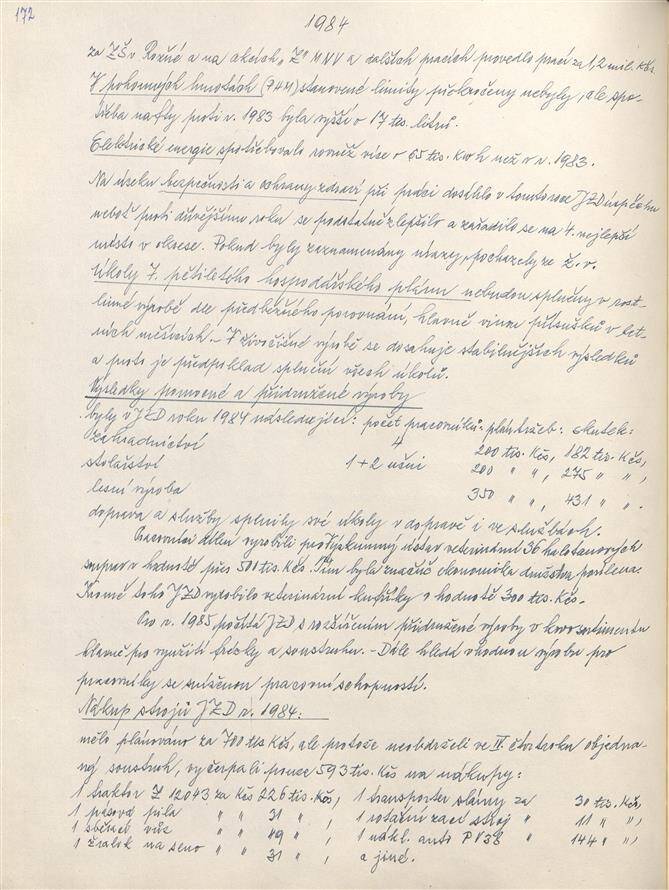 172
1984
za ZŠ v Rožné a na akcích „Z" MNV a dalších pracích provedlo prací za 1,2 mil. Kčs.
V pohonných hmotách (PHM) stanovené limity překročeny nebyly, ale spo-
třeba nafty proti r. 1983 byla vyšší o 17 tis. litrů.
Elektrické energie spotřebovalo rovněž více o 65 tis. kwh než v r. 1983.
Na úseku bezpečnosti a ochrany zdraví při práci dosáhlo v tomto roce JZD úspěchu
neboť proti dřívějšímu roku se podstatně zlepšilo a zařadilo se na 4. nejlepší
místo v okrese. Pokud byly zaznamenány úrazy, pocházely ze Ž. v.
Úkoly 7. pětiletého hospodářského plánu nebudou splněny v rost-
linné výrobě dle předběžného porovnání, hlavně vinou přísušků v let-
ních měsících. – V živočišné výrobě se dosahuje stabilnějších výsledků
a proto je předpoklad splnění všech úkolů.
Výsledky pomocné a přidružené výroby
byly v JZD roku 1984 následující: počet pracovníků: plán tržeb: skutek:
zahradnictví 4 200 tis. Kčs, 182 tis. Kčs,
stolářství 1 + 2 učni 200 " ", 275 " ",
lesní výroba 350 " ", 431 " ".
doprava a služby splnily své úkoly v dopravě i ve službách.
Pracovníci dílen vyrobili pro Výzkumný ústav veterinární 36 halotanových
souprav v hodnotě přes 501 tis. Kčs. Tím byla značně ekonomika družstva posílena.
Kromě toho JZD vyrobilo veterinární kufříky v hodnotě 300 tis. Kčs.
Pro r. 1985 počítá JZD s rozšířením přidružené výroby v kovosortimentu
hlavně pro využití frézky a soustruhu. – Dále hledá vhodnou výrobu pro
pracovníky se sníženou pracovní schopností.
Nákup strojů JZD r. 1984:
mělo plánováno za 700 tis Kčs, ale protože neobdrželi ve IV. čtvrtroku objedna-
ný soustruh, vyčerpali pouze 593 tis. Kčs na nákupy:
1 traktor Z 12043 za Kčs 226 tis. Kčs, 1 transportér slámy za 30 tis. Kčs,
1 pásová pila " " 31 " , 1 rotační žací stroj " 11 " ",
1 sběrací vůz " " 49 " , 1 nákl. auto PV3S " 144 " ",
1 žralok na seno " " 31 " , a jiné.